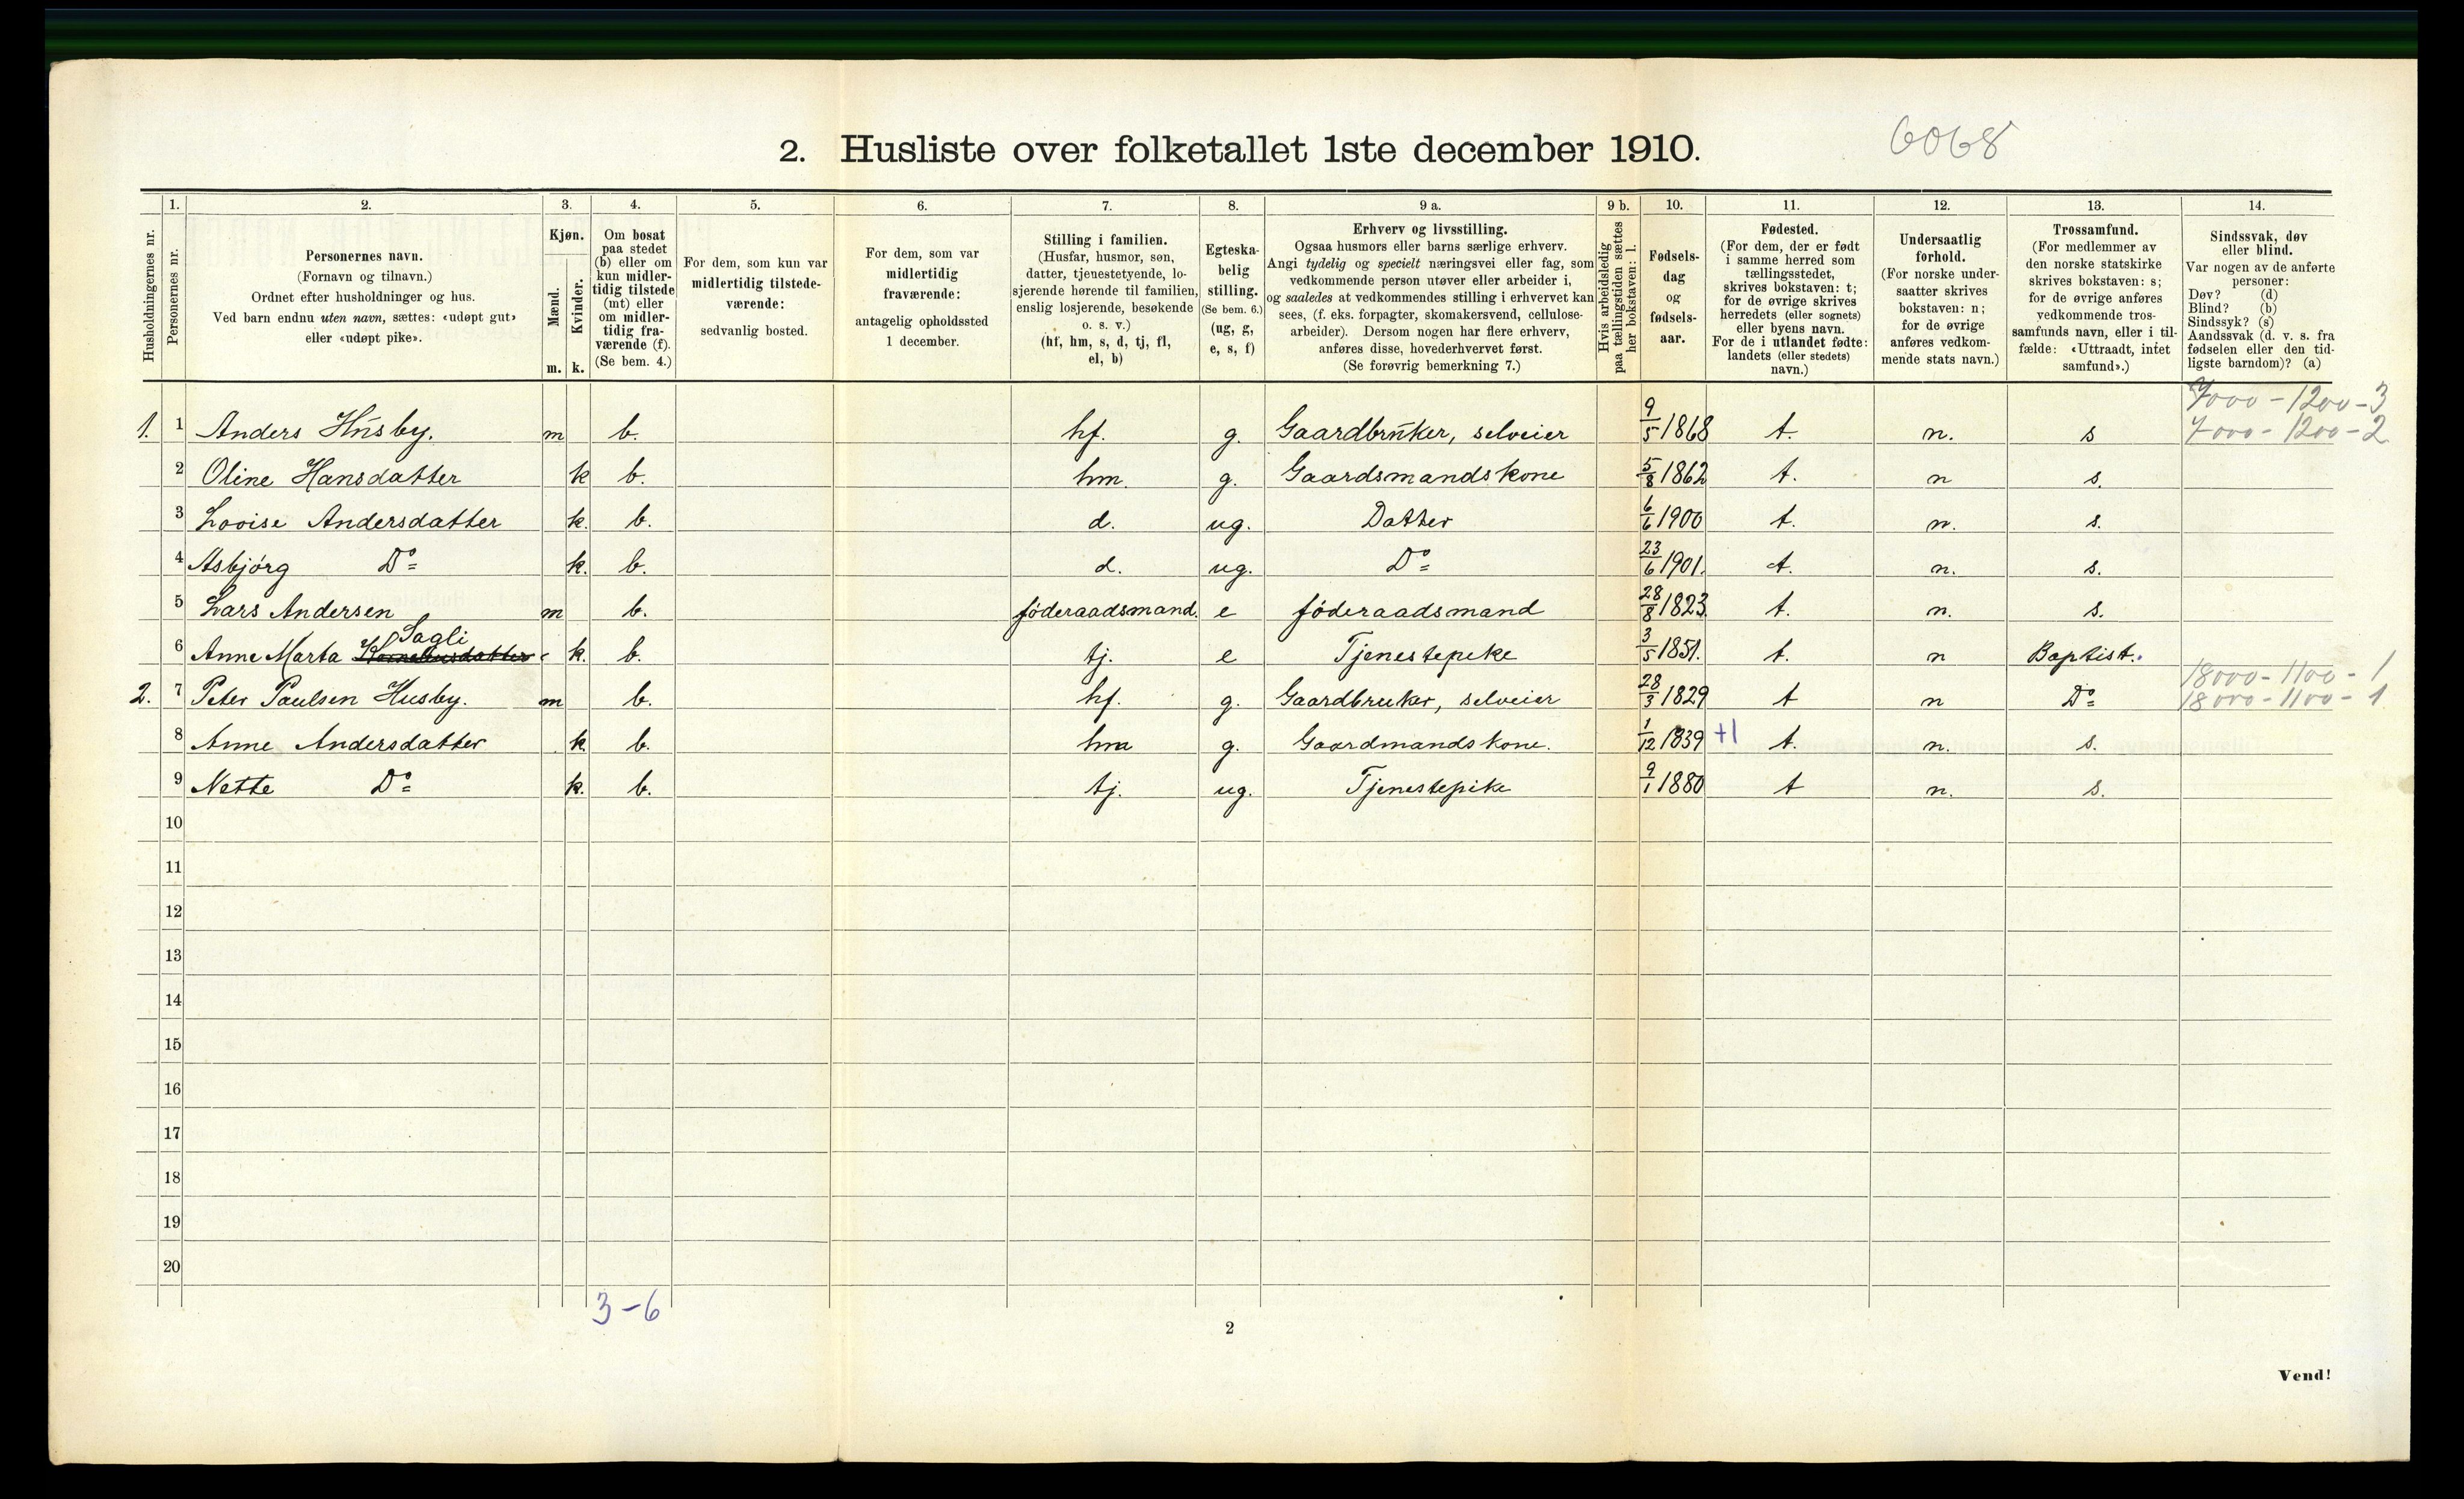 2. Husliste over folketallet 1ste december 1910.
6068
Husholdningernes nr.
1.
Personernes nr.
2.
Personernes navn.
(Fornavn og tilnavn.)
Ordnet efter husholdninger og hus.
Ved barn endnu uten navn, sættes: «udøpt gut»
eller «udøpt pike».
3.
Kjøn.
Mænd.
Kvinder.
m. k.
4.
Om bosat
paa stedet
(b) eller om
kun midler-
tidig tilstede
(mt) eller
om midler-
tidig fra-
værende (f).
(Se bem. 4.)
5.
For dem, som kun var
midlertidig tilstede-
værende:
sedvanlig bosted.
6.
For dem, som var
midlertidig
fraværende:
antagelig opholdssted
1 december.
7.
Stilling i familien.
(Husfar, husmor, søn,
datter, tjenestetyende, lo-
sjerende hørende til familien,
enslig losjerende, besøkende
o. s. v.)
(hf, hm, s, d, tj, fl,
el, b)
8.
Egteska-
belig
stilling.
(Se bem. 6.)
(ug, g,
e, s, f)
9 a.
Erhverv og livsstilling.
Ogsaa husmors eller barns særlige erhverv.
Angi tydelig og specielt næringsvei eller fag, som
vedkommende person utøver eller arbeider i,
og saaledes at vedkommendes stilling i erhvervet kan
sees, (f. eks. forpagter, skomakersvend, cellulose-
arbeider). Dersom nogen har flere erhverv,
anføres disse, hovederhvervet først.
(Se forøvrig bemerkning 7.)
9 b.
Hvis arbeidsledig
paa tællingstiden sættes
her bokstaven: l.
10.
Fødsels-
dag
og
fødsels-
aar.
11.
Fødested.
(For dem, der er født
i samme herred som
tællingsstedet,
skrives bokstaven: t;
for de øvrige skrives
herredets (eller sognets)
eller byens navn.
For de i utlandet fødte:
landets (eller stedets)
navn.)
12.
Undersaatlig
forhold.
(For norske under-
saatter skrives
bokstaven: n;
for de øvrige
anføres vedkom-
mende stats navn.)
13.
Trossamfund.
(For medlemmer av
den norske statskirke
skrives bokstaven: s;
for de øvrige anføres
vedkommende tros-
samfunds navn, eller i til-
fælde: «Uttraadt, intet
samfund».)
14.
Sindssvak, døv
eller blind.
Var nogen av de anførte
personer:
Døv? (d)
Blind? (b)
Sindssyk? (s)
Aandssvak (d. v. s. fra
fødselen eller den tid-
ligste barndom)? (a)
7000 - 1200 - 3
1. 1 Anders Husby. m b. hf. g. Gaardbruker, selveier 9/5 1868 t. n. s 7000 - 1200 - 2
2 Oline Hansdatter k b. hm. g. Gaardsmandskone 5/8 1862 t. n s.
3 Lovise Andersdatter k. b. d. ug. Datter 6/6 1900 t. n. s.
4 Asbjørg Do k. b. d. ug. Do 23/6 1901. t. n. s.
5 Lars Andersen m b. föderaadsmand. e föderaadsmand 28/8 1823 t. n. s.
Sagli
6 Anne Marta k. b. tj. e Tjenestepeke 3/5 1851. t. n Baptist.
18000 - 1100 - 1
2. 7 Peter Paulsen Husby. m b. hf. g. Gaardbruker, selveier 28/3 1829 t n Do 18000 - 1100 - 1
8 Anne Andersdatter k. b. hm g. Gaardmandskone. 1/12 1839 +1 t. n. s.
9 Nette Do k. b. tj. ug. Tjenestepike 9/1 1880 t n. s.
10
11
12
13
14
15
16
17
18
19
20
3 - 6
2
Vend!